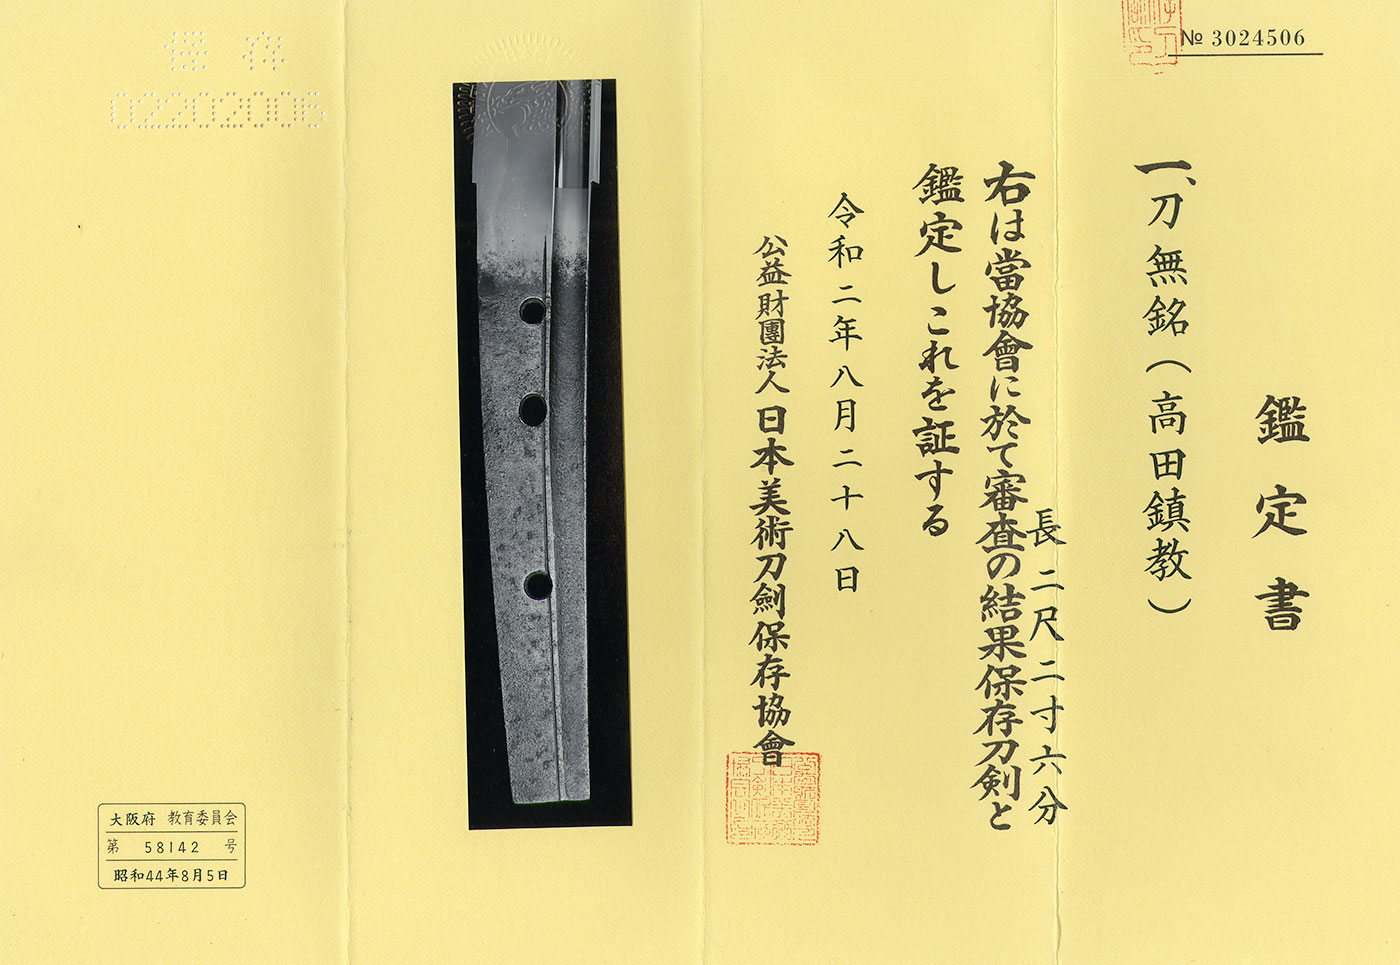 № 3024506
鑑定書
一、刀 無銘(高田鎮教)
長二尺二寸六分
右は當協會に於て審査の結果保存刀剣と
鑑定しこれを証する
令和二年八月二十八日
公益財團法人 日本美術刀劍保存協會
保存
02202006
大阪府 教育委員会
第 58142 号
昭和44年8月5日